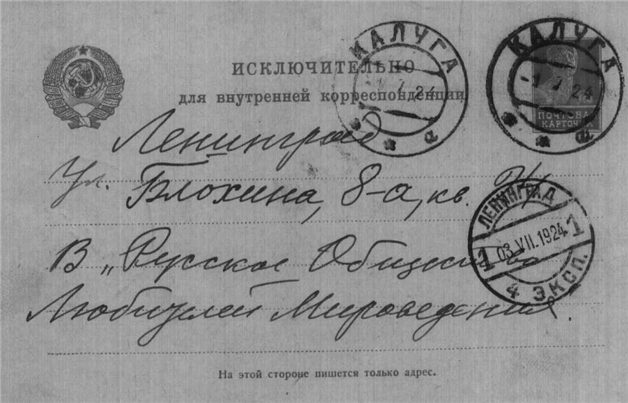 КАЛУГА
КАЛУГА
ИСКЛЮЧИТЕЛЬНО
для внутренней корреспонденции
7 24
-1 7 24
ПОЧТОВА
КАРТОЧ
Ленинград
Ул. Блохина, 8-а, кв. 4
ЛЕНИНГРАД
1 03 VII. 1924 1
4 ЭКСП.
В „Русское Общество
Любителей Мироведения.
На этой стороне пишется только адрес.